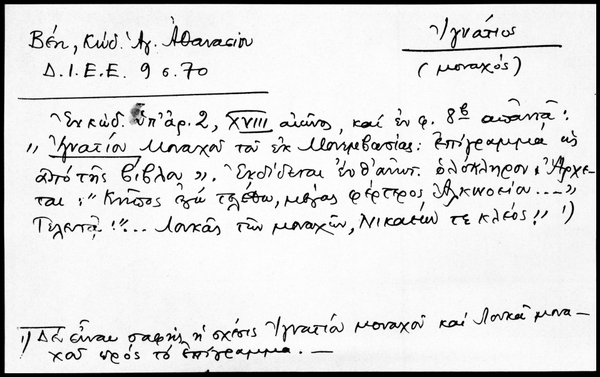 Βέη, Κώδ. Ἁγ. Ἀθανασίου
Δ.Ι.Ε.Ε. 9 σ. 70
Ἰγνάτιος
(μοναχός)
Ἐν κώδ. ὑπ' ἀρ. 2, XVIII αἰῶνος, καὶ ἐν φ. 8β ἀπαντᾷ:
„ Ἰγνατίου Μοναχοῦ τοῦ ἐκ Μονεμβασίας: Ἐπίγραμμα εἰς
αὐτὸ τῆς βίβλου ". Ἐκδίδεται ἐνθ' ἀνωτ. ὁλόκληρον. Ἄρχε-
ται: " Κῆπος ἐγὼ τελέθω, μέγας φέρτερος Ἀλκινοείου ..."
Τελευτᾷ: "... Λουκᾶς τῶν μοναχῶν, Νικαιέων τε κλέος." 1)
1) Δὲν εἶναι σαφὴς ἡ σχέσις Ἰγνατίου μοναχοῦ καὶ Λουκᾶ μονα-
χοῦ πρὸς τὸ ἐπίγραμμα. —